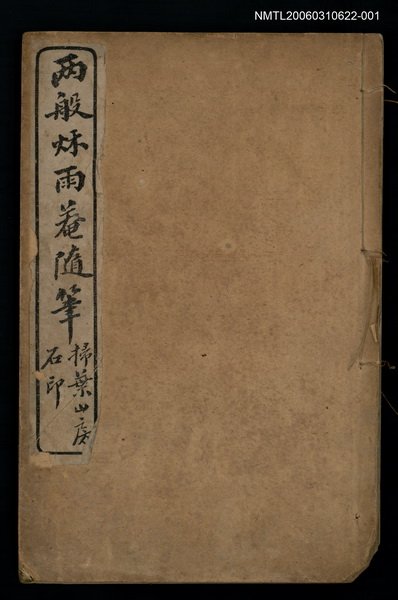 NMTL20060310622-001
两般秌雨菴随筆
掃葉山房
石印